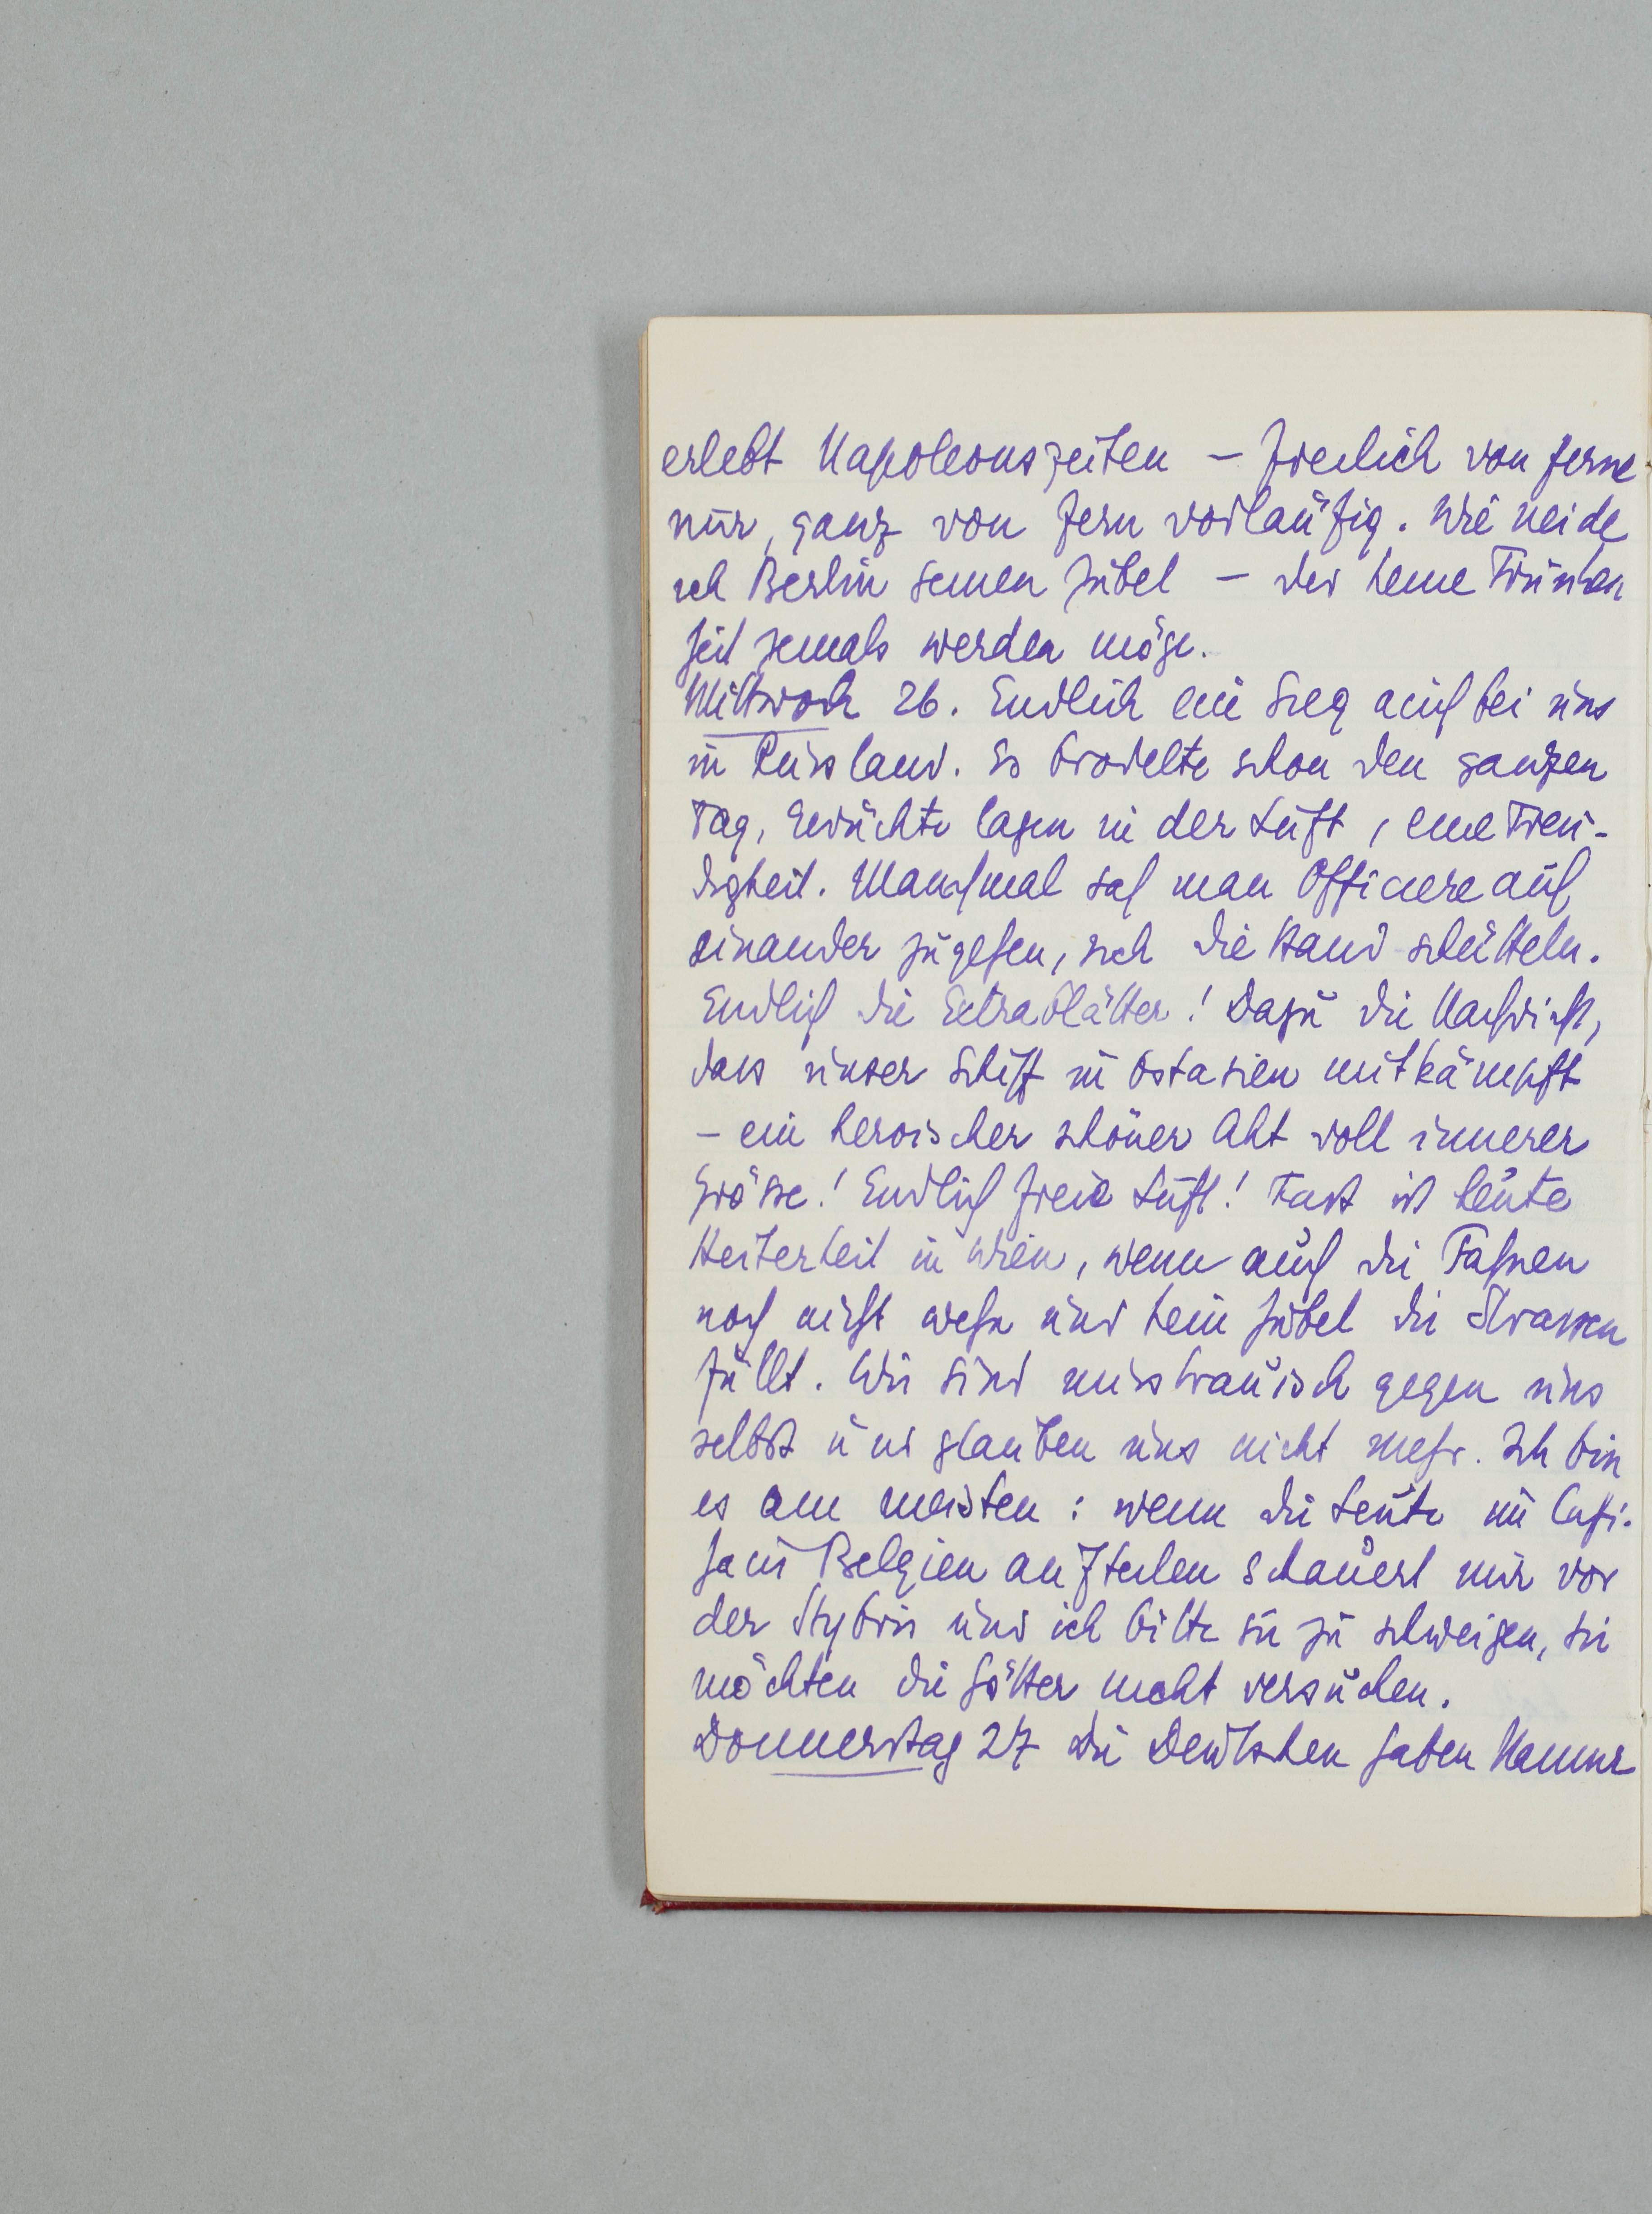 erlebt Napoleonszeiten – freilich von ferne
nur, ganz von fern vorläufig. Wie neide
ich Berlin seinen Jubel – der keine Trunken
heit jemals werden möge.
Mittwoch 26. Endlich ein Sieg auch bei uns
in Russland. Es brodelte schon den ganzen
Tag, Gerüchte lagen in der Luft, eine Freu-
digkeit. Manchmal sah man Officiere auf
einander zugehen, sich die Hand schütteln.
Endlich die Extrablätter! Dazu die Nachricht,
dass unser Schiff in Ostasien mitkämpft
– ein heroischer schöner Akt voll innerer
Grösse! Endlich freie Luft! Fast ist heute
Heiterkeit in Wien, wenn auch die Fahnen
noch nicht wehn und kein Jubel die Strassen
füllt. Wir sind misstrauisch gegen uns
selbst und glauben uns nicht mehr. Ich bin
es am meisten: wenn die Leute im Café-
haus Belgien aufteilen schauert mir vor
der Hybris und ich bitte sie zu schweigen, sie
möchten die Götter nicht versuchen.
Donnerstag 27 Die Deutschen haben Namur